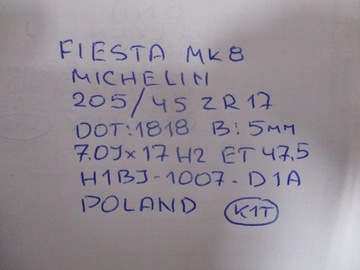 FIESTA MK8
MICHELIN
205/45 ZR17
DOT:1818 B:5mm
7.0Jx17 H2 ET 47.5
H1BJ-1007-D1A
POLAND K1T